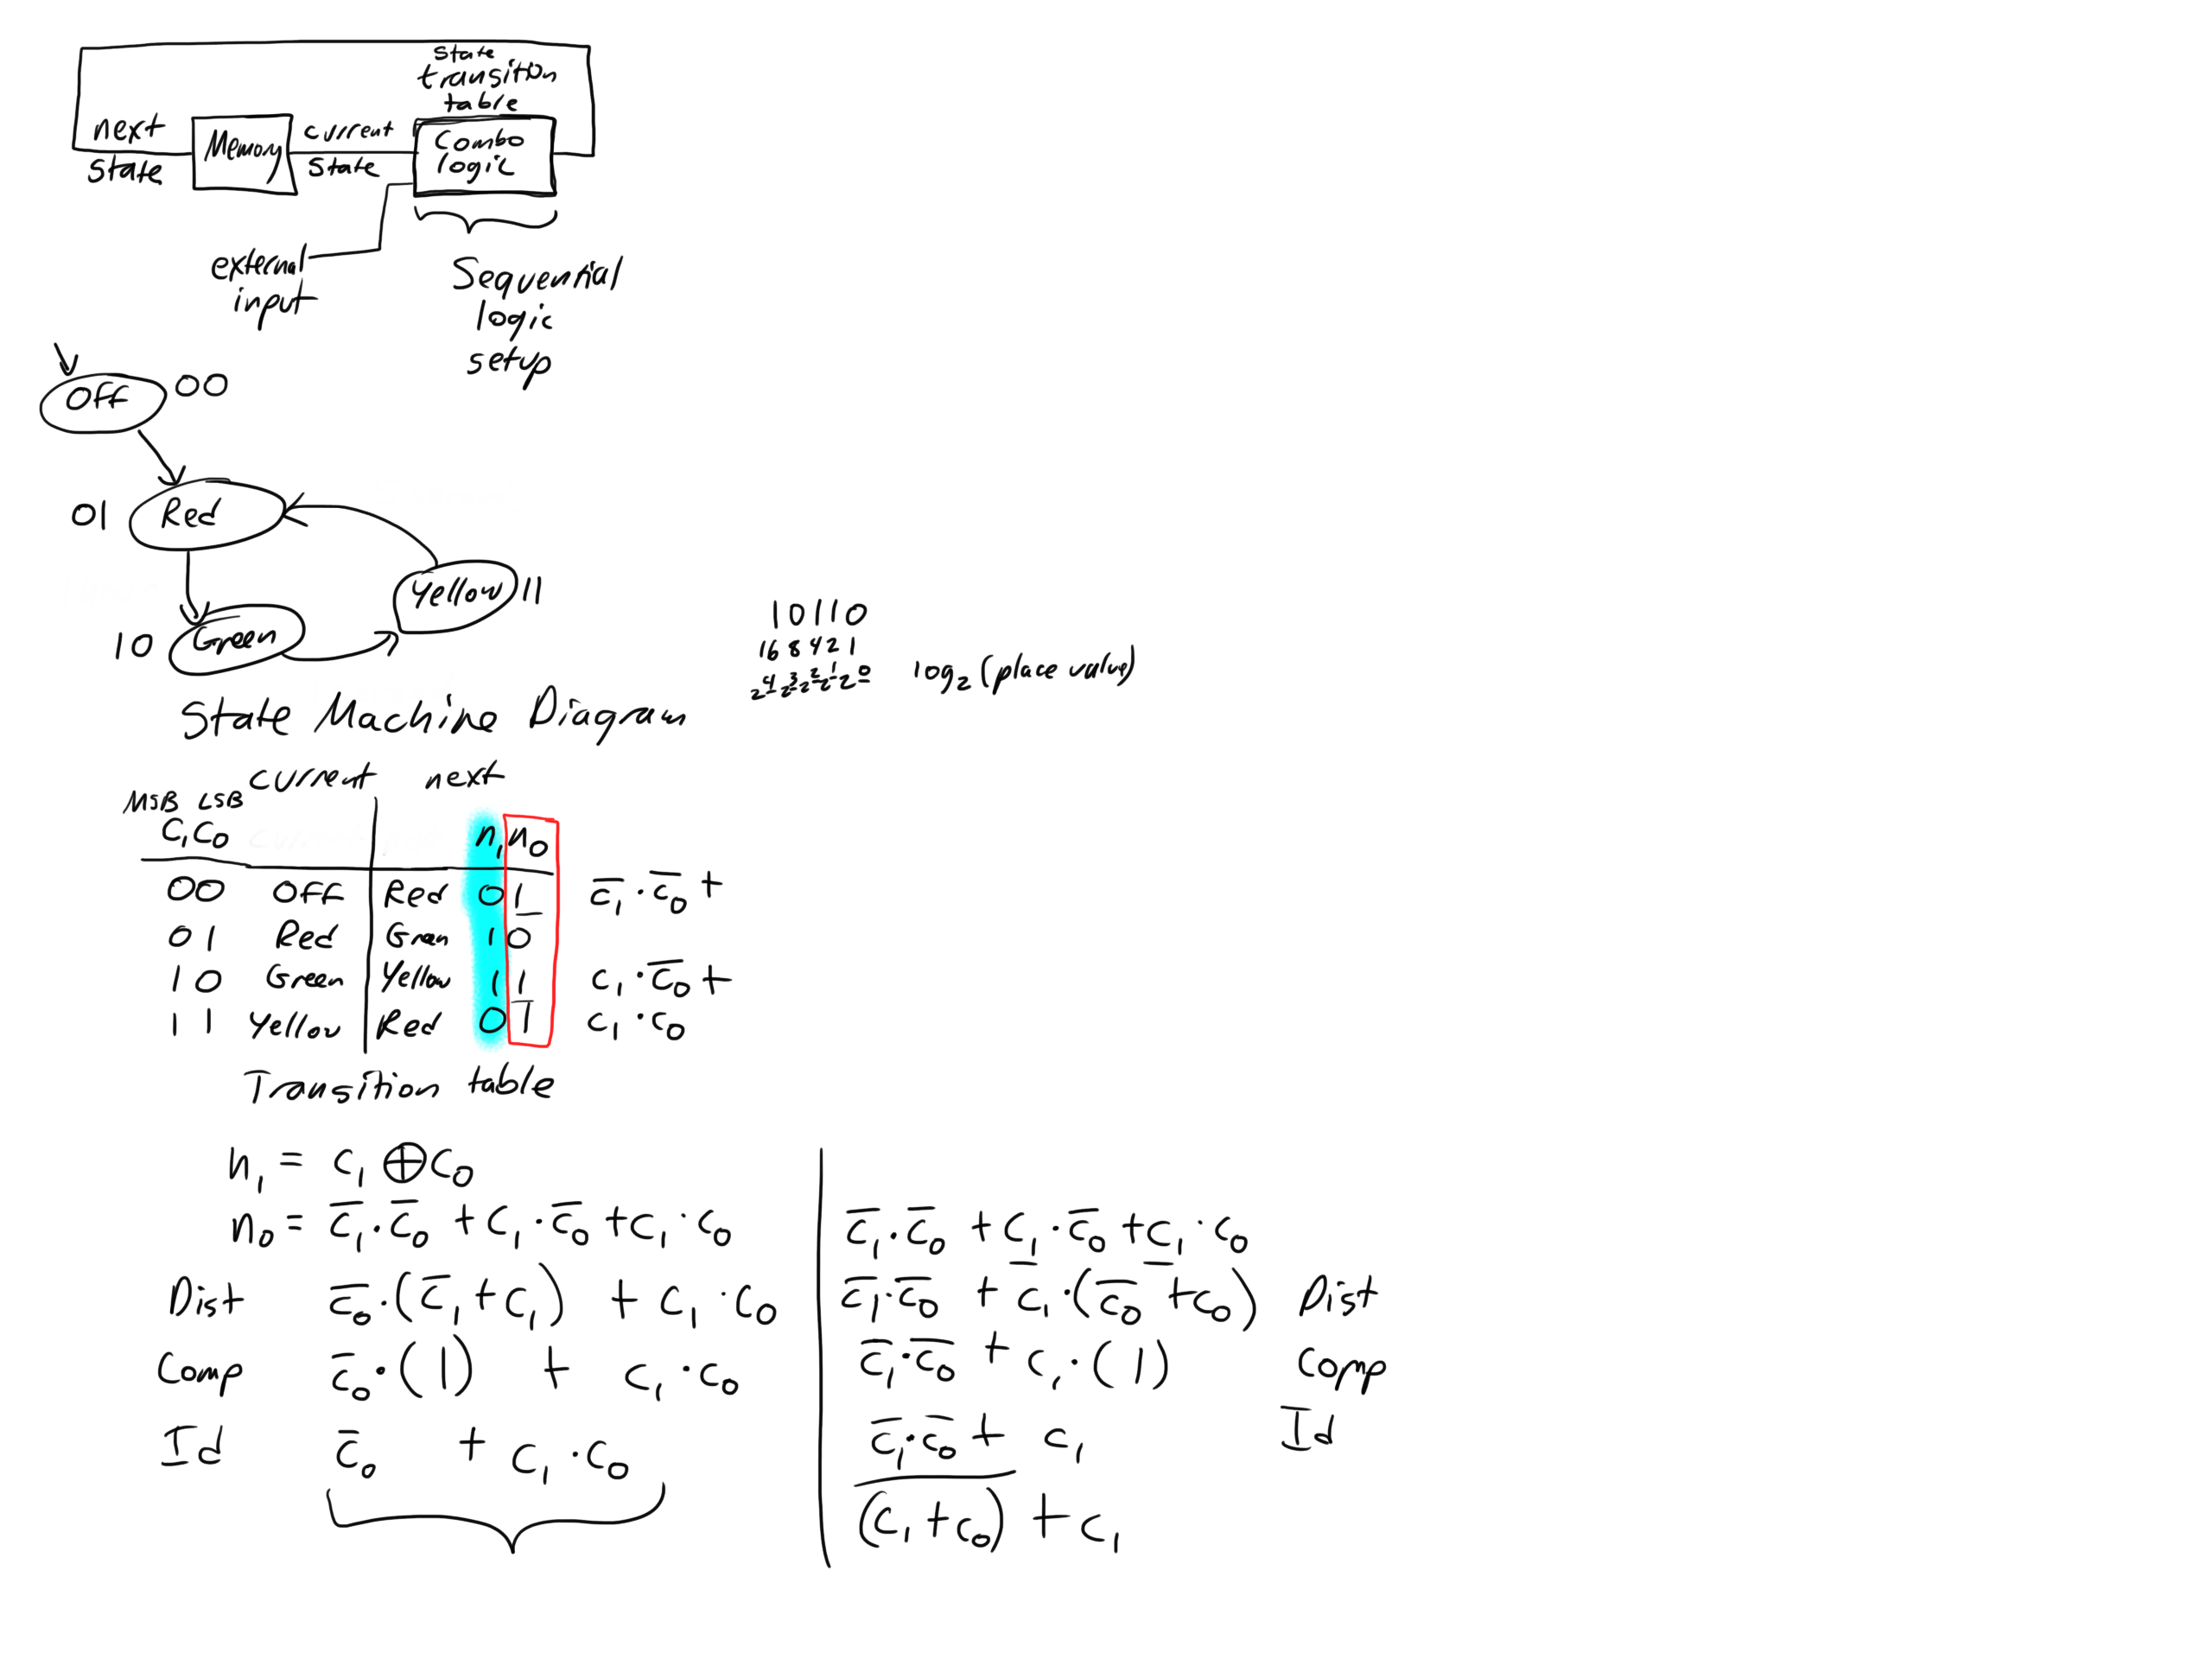 state
transition
table
next
state
Memory
current
state
Combo
logic
external
input
Sequential
logic
setup
Off 00
01 Red
Yellow 11
10 Green
State Machine Diagram
10110
16 8 4 2 1
2⁴ 2³ 2² 2¹ 2⁰ log₂ (place value)
current next
MSB LSB
C₁C₀ n₁n₀
00 Off Red 01 c̅₁·c̅₀ +
01 Red Green 10
10 Green Yellow 11 c₁·c̅₀ +
11 Yellow Red 01 c₁·c₀
Transition table
n₁ = c₁ ⊕ c₀
n₀ = c̅₁·c̅₀ + c₁·c̅₀ + c₁·c₀
Dist c̅₀·(c̅₁ + c₁) + c₁·c₀
Comp c̅₀·(1) + c₁·c₀
Id c̅₀ + c₁·c₀
c̅₁·c̅₀ + c₁·c̅₀ + c₁·c₀
c̅₁·c̅₀ + c₁·(c̅₀ + c₀) Dist
c̅₁·c̅₀ + c₁·(1) Comp
c̅₁·c̅₀ + c₁ Id
(c₁ + c₀)̅ + c₁